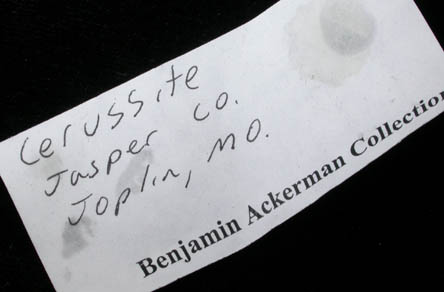 Cerussite
Jasper Co.
Joplin, MO.
Benjamin Ackerman Collection